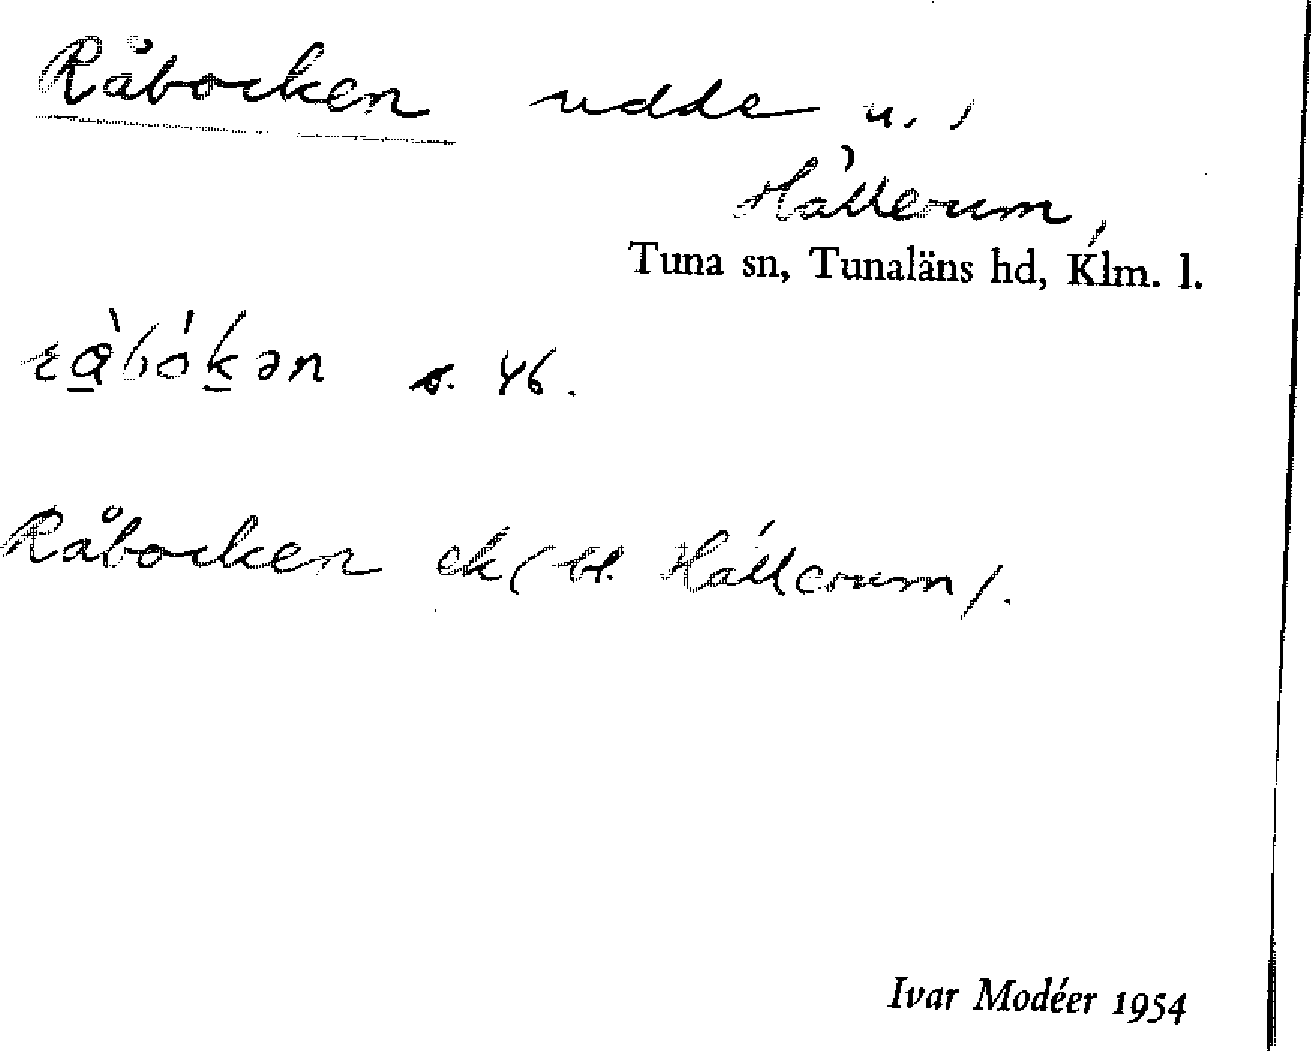 Råbocken udde u. 
Hällerum,
Tuna sn, Tunaläns hd, Klm. l.
ràbókən s. 46.
Råbocken ek (bl. Hällerum).
Ivar Modéer 1954